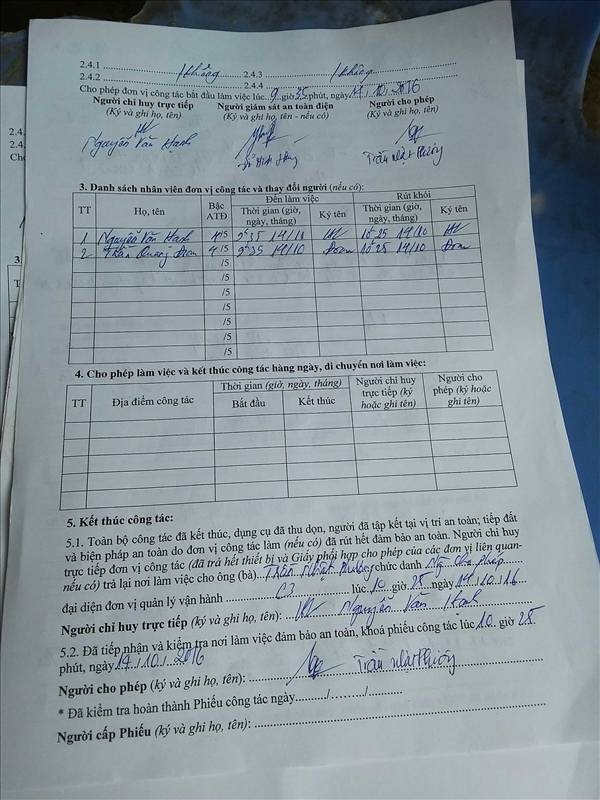 2.4.1 ........ không ........ 2.4.3 ........ không ........
2.4.2 ........ 2.4.4 ........
Cho phép đơn vị công tác bắt đầu làm việc lúc 9 giờ 35 phút, ngày 14/10/2016
Người chỉ huy trực tiếp Người giám sát an toàn điện Người cho phép
(Ký và ghi họ, tên) (Ký và ghi họ, tên - nếu có) (Ký và ghi họ, tên)
Nguyễn Văn Hạnh Trần Nhật Phương
3. Danh sách nhân viên đơn vị công tác và thay đổi người (nếu có):
TT Họ, tên Bậc ATĐ Đến làm việc Rút khỏi
Thời gian (giờ, ngày, tháng) Ký tên Thời gian (giờ, ngày, tháng) Ký tên
1 Nguyễn Văn Hạnh 4/5 14/10 10h25 14/10
2 Quang 4/5 9h35 14/10 10h25 14/10
/5
/5
/5
/5
/5
/5
/5
4. Cho phép làm việc và kết thúc công tác hàng ngày, di chuyển nơi làm việc:
TT Địa điểm công tác Thời gian (giờ, ngày, tháng) Người chỉ huy trực tiếp (ký hoặc ghi tên) Người cho phép (ký hoặc ghi tên)
Bắt đầu Kết thúc
5. Kết thúc công tác:
5.1. Toàn bộ công tác đã kết thúc, dụng cụ đã thu dọn, người đã tập kết tại vị trí an toàn; tiếp đất
và biện pháp an toàn do đơn vị công tác làm (nếu có) đã rút hết đảm bảo an toàn. Người chỉ huy
trực tiếp đơn vị công tác (đã trả hết thiết bị và Giấy phối hợp cho phép của các đơn vị liên quan-
nếu có) trả lại nơi làm việc cho ông (bà) Trần Nhật Phương chức danh Ng cho phép
đại diện đơn vị quản lý vận hành ........ lúc 10 giờ 25 ngày 14/10/16
Người chỉ huy trực tiếp (ký và ghi họ, tên): Nguyễn Văn Hạnh
5.2. Đã tiếp nhận và kiểm tra nơi làm việc đảm bảo an toàn, khoá phiếu công tác lúc 10 giờ 25
phút, ngày 14/10/2016
Người cho phép (ký và ghi họ, tên): Trần Nhật Phương
* Đã kiểm tra hoàn thành Phiếu công tác ngày......../......../........
Người cấp Phiếu (ký và ghi họ, tên): ........